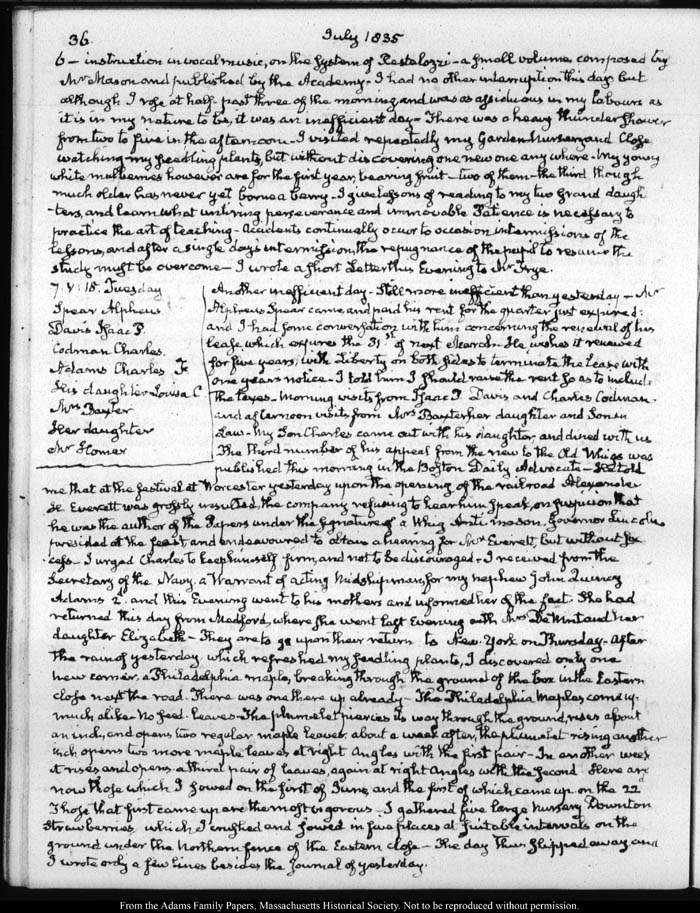 36.
July 1835
6 – instruction in vocal music, on the System of Pestalozzi – a small volume composed by
Mr Mason and published by the Academy – I had no other interruption this day but
although I rose at half past three of the morning, and was as assiduous in my labours as
it is in my nature to be, it was an inefficient day – There was a heavy thunder shower
from two to five in the afternoon – I visited repeatedly my Garden Nursery and Close
watching my seedling plants, but without discovering one new one any where – My young
white mulberries however are for the first year bearing fruit – two of them – the third though
much older has never yet borne a berry – I give lessons of reading to my two Grand daugh
-ters, and learn what untiring perseverance and immovable Patience is necessary to
practice the art of teaching – Accidents continually occur to occasion intermissions of the
lessons, and after a single day's intermission, the repugnance of the pupil to resume the
study must be overcome – I wrote a short Letter this Evening to Mr Frye.
7. V: 15. Tuesday
Spear Alpheus
Davis Isaac P.
Codman Charles.
Adams Charles F.
His daughter Louisa C
Mrs Baxter
Her daughter
Mr Homer
Another inefficient day – Still more inefficient than yesterday – Mr
Alpheus Spear came and paid his rent for the quarter just expired:
and I had some conversation with him concerning the renewal of his
lease which expires the 31st of next March. He wishes it renewed
for five years, with Liberty on both sides to terminate the Lease with
one years notice – I told him I should raise the rent so as to include
the taxes – Morning visits from Isaac P. Davis and Charles Codman.
and afternoon visits from Mrs Baxter her daughter and Son in
Law – My Son Charles came out with his daughter and dined with us
The third number of his appeal from the new to the Old Whigs was
published this morning in the Boston Daily Advocate – He told
me that at the festival at Worcester yesterday upon the opening of the railroad Alexander
H. Everett was grossly insulted, the company refusing to hear him speak, on suspicion that
he was the author of the Papers under the signature of a Whig Anti-mason. Governor Lincoln
presided at the feast and endeavoured to obtain a hearing for Mr Everett, but without suc
-cess – I urged Charles to keep himself firm, and not to be discouraged – I received from the
Secretary of the Navy, a Warrant of acting Midshipman, for my nephew John Quincy
Adams 2d and this Evening went to his mothers and informed her of the fact. She had
returned this day from Medford, where she went last Evening with Mrs De Wint and her
daughter Elizabeth – They are to go upon their return to New-York on Thursday – After
the rain of yesterday which refreshed my seedling plants, I discovered only one
new comer, a Philadelphia maple, breaking through the ground of the box in the Eastern
close next the road. There was one there up already – The Philadelphia Maples come up
much alike – No seed leaves – The plumelet pierces its way through the ground, rises about
an inch, and opens two regular maple leaves, about a week after, the plumelet rising another
inch opens two more maple leaves at right Angles with the first pair – In another week
it rises and opens a third pair of leaves, again at right Angles with the second – Here are
now those which I sowed on the first of June, and the first of which came up on the 22
Those that first came up are the most vigorous – I gathered five large Nursery Downton
Strawberries, which I crushed and sowed in five places at suitable intervals on the
ground under the Northern fence of the Eastern close – The day thus slipped away and
I wrote only a few lines besides the Journal of yesterday.
From the Adams Family Papers, Massachusetts Historical Society. Not to be reproduced without permission.